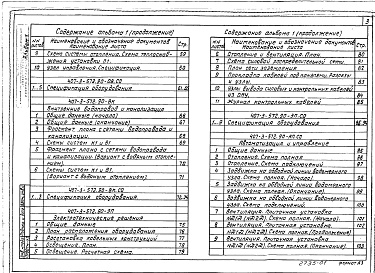 3
Содержание альбома 1 (продолжение)
NN листа
Наименование и обозначение документов
Наименование листа
Стр.
9 Схема системы отопления. Схема теплоснаб-
жения установки П1. 59
10 Узел управления. Спецификация 60
407-3-572.90-ОВ.СО
1..5 Спецификация оборудования
407-3-572.90-ВК
Внутренние водопровод и канализация
1 Общие данные (начало) 66
2 Общие данные (окончание) 67
3 Фрагмент плана с сетями водопровода и
канализации. 68
4 Схемы систем 69
5 Фрагмент плана с сетями водопровода
и канализации (вариант с водяным отопле-
нием).
6 Схемы систем
(вариант с водяным отоплением)
407-3-572.90-ВК.СО
1..3 Спецификация оборудования
407-3-572.90-ЭП
Электротехнические решения
1 Общие данные 75
2 План расположения оборудования. 76
3 Расстановка кабельных конструкций 77
4 Освещение. План 78
5 Освещение. Расчетная схема. 79
Содержание альбома 1 (продолжение)
NN листа
Наименование и обозначение документов
Наименование листа
Стр.
6 Отопление и вентиляция. План. 80
7 Схема силовой распределительной сети. 81
8 План сети заземления. 82
9 Прокладка кабелей под панелями. Разрезы
и узлы. 83
10 Узлы вывода силовых и контрольных кабелей
из ОПУ. 84
11 Журнал контрольных кабелей 85
407-3-572.90-ЭП.СО
1..9 Спецификация оборудования
407-3-572.90-АО
Автоматизация и управление
1 Общие данные 95
2 Отопление. Схема полная 96
3 Отопление. Схема подключения 97
4 Задвижка на обводной линии водомерного
узла. Схема полная. (Начало) 98
5 Задвижка на обводной линии водомерного
узла. Схема полная. (Окончание) 99
6 Задвижка на обводной линии водомерного
узла. Схема подключения 100
7 Вентиляция. Приточная установка
Схема полная. (Начало) 101
8 Вентиляция. Приточная установка
Схема полная. (Продолжение) 102
9 Вентиляция. Приточная установка
Схема полная. (Окончание) 103
2735-01
Формат А3